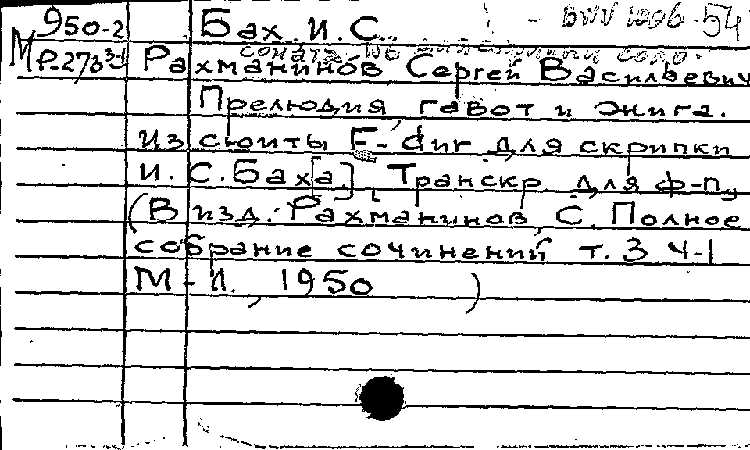 950-2 Бах И.С. - BWV 1006 - 54
М Р-273 Рахманинов Сергей Васильевич
Прелюдия, гавот и жига.
Из сюиты E-dur для скрипки
И. С. Бах[а.] Транскр. для ф-п.
(В изд.: Рахманинов, С. Полное
собрание сочинений т. 3 ч-1
М-Л., 1950 )